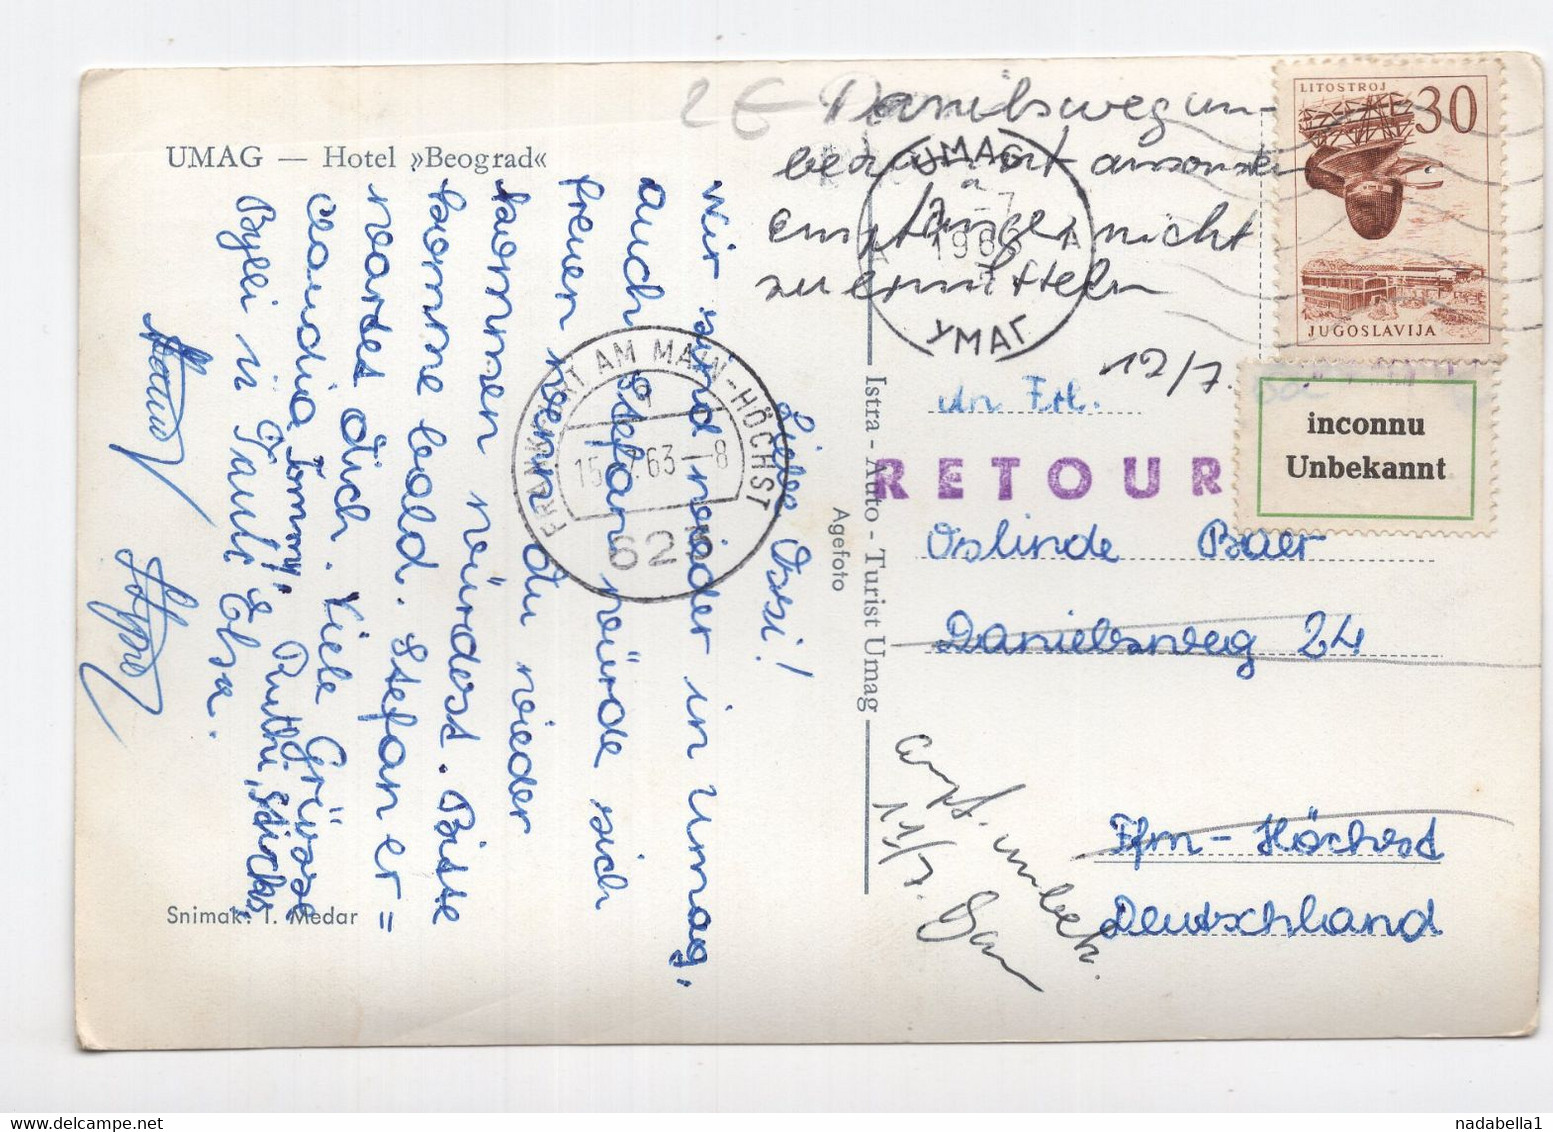 UMAG — Hotel »Beograd«
Liebe Ossi!
Wir sind wieder in Umag,
auch Stefan würde sich
freuen wenn du wieder
kommen würdest. Bitte
komme bald. Stefan er=
wartet dich. Viele Grüsse
Claudia, Tommy, Ruthi,
i Pauli, Elsa.
Snimak: T. Medar
Istra - Auto - Turist Umag
Agefoto
2 €
Danielsweg un-
bekannt ansonsten
empfänger nicht
zu ermitteln
12/7.
UMAG
1963
УМАГ
LITOSTROJ
30
JUGOSLAVIJA
inconnu
Unbekannt
An Frl.
RETOUR
Oslinde Baer
Danielsweg 24
Ffm - Höchst
Deutschland
empf. unbek.
11/7.
FRANKFURT AM MAIN-HÖCHST
15.7.63-8
623
nadabella1